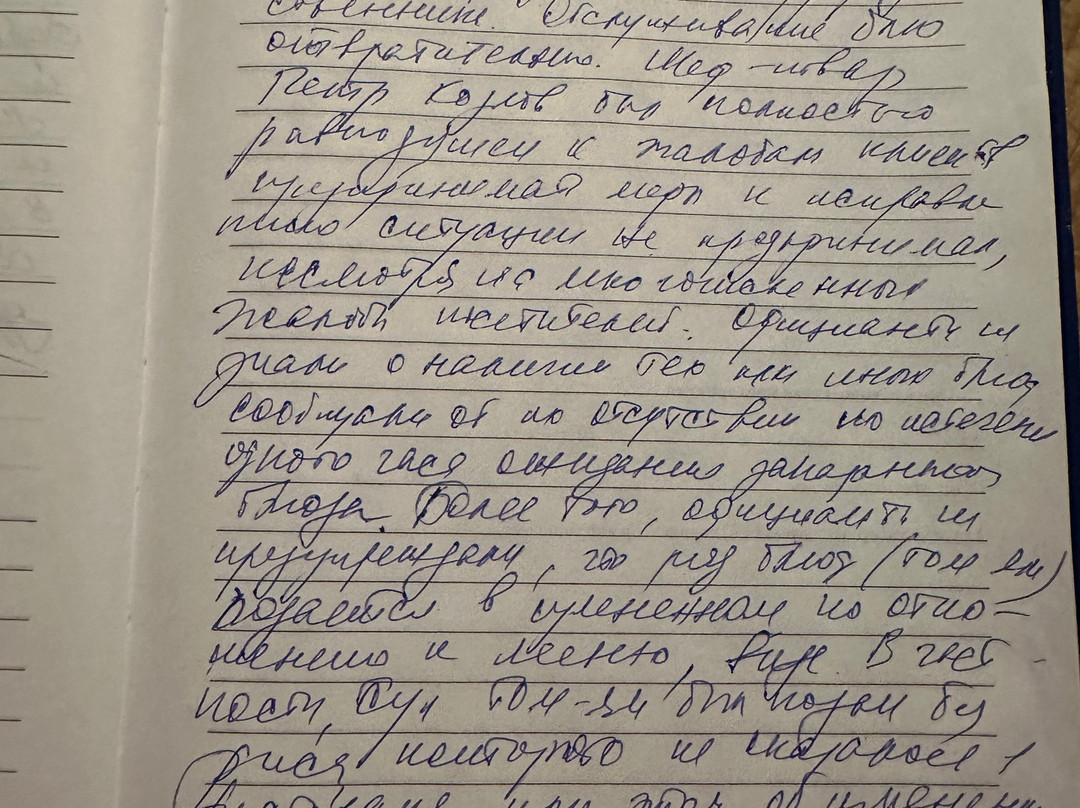 ственните. Обслуживание было
отвратительно. Шеф-повар
Петр Козлов был полностью
равнодушен к жалобам клиентов
предпринимал меры к исправле
нию ситуации не предпринимал,
несмотря на многочисленные
жалобы посетителей. Официанты не
знали о наличии тех или иных блюд
сообщали об их отсутствии по истечении
одного часа ожидания заказанного
блюда. Более того, официанты не
предупреждали, что ряд блюд (том ям)
подается в измененном по отно-
шению к меню, виде. В част
ности, суп том-ям был подан без
риса которого не оказалось